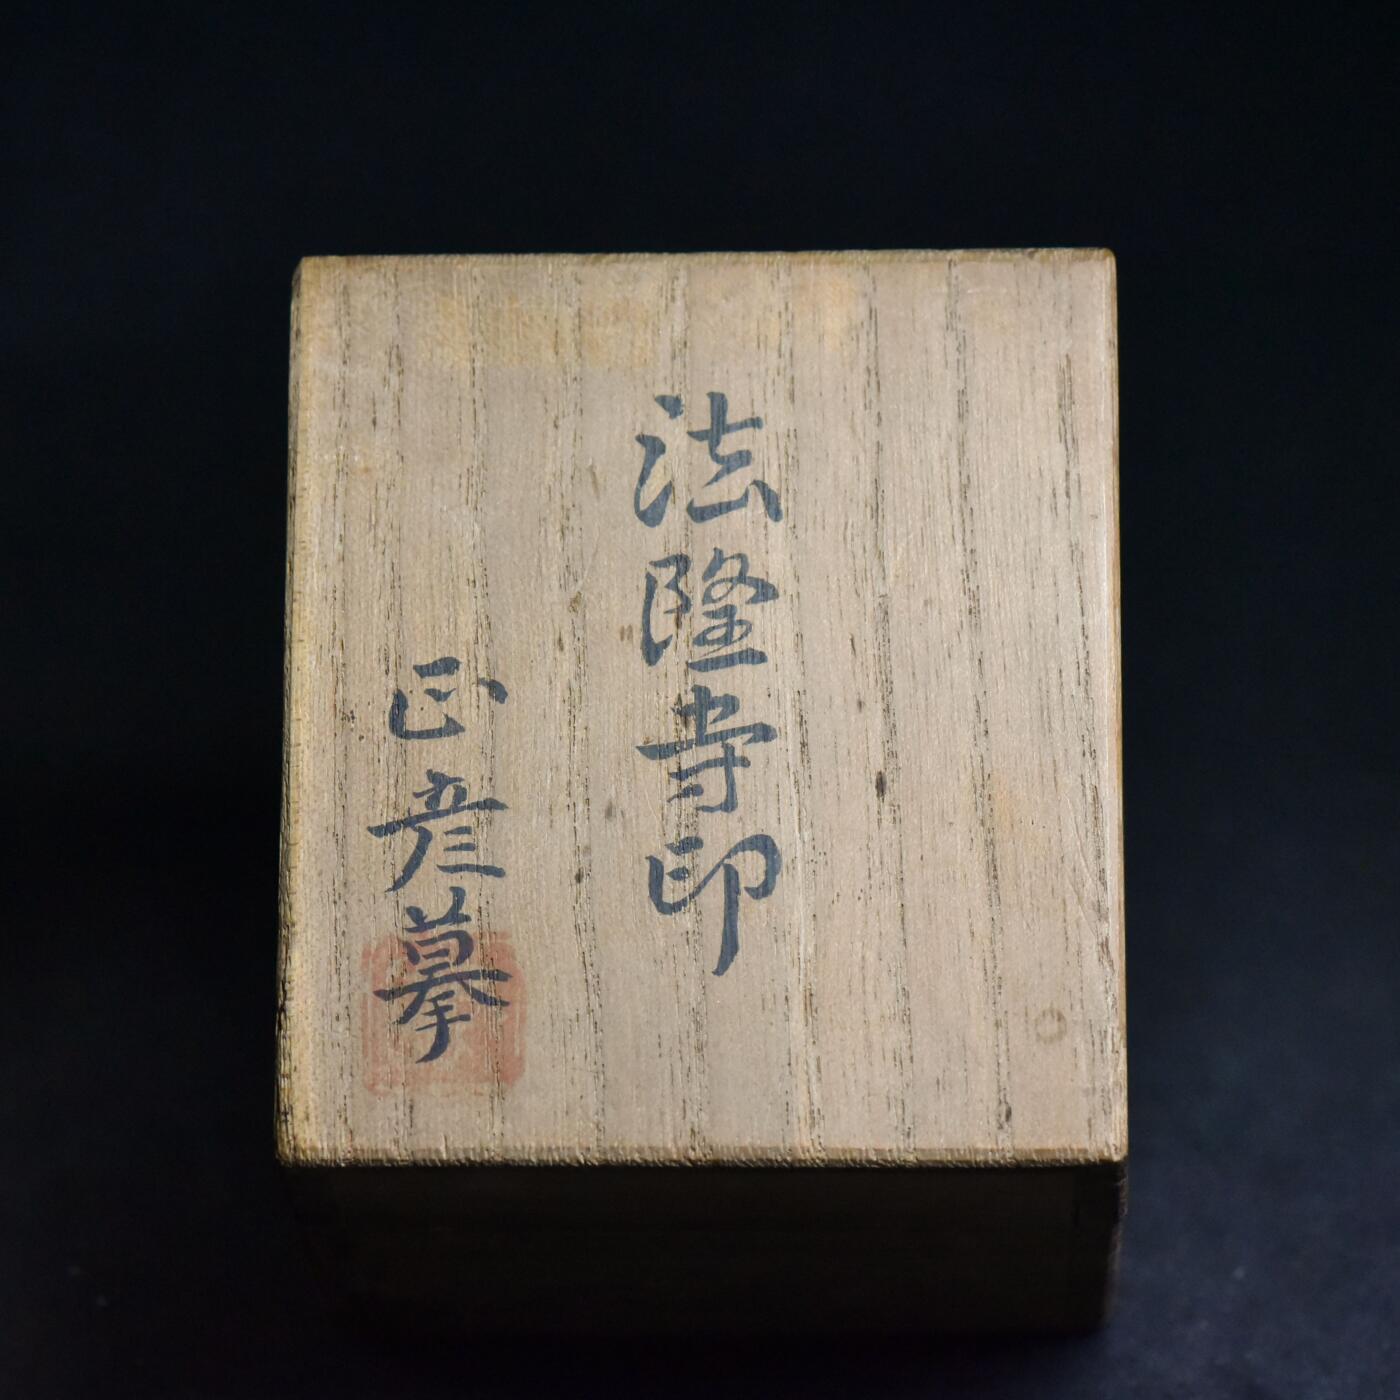 法隆寺印
正彦摹